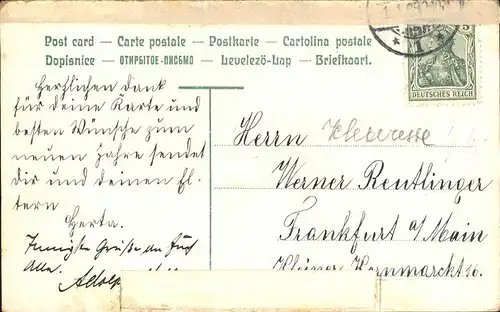 Post card — Carte postale — Postkarte — Cartolina postale
Dopisnice — ОТКРЫТОЕ-ПИСЬМО — Levelezö-Lap — Briefkaart.
5
DEUTSCHES REICH
* 1 *
Herzlichen Dank
für deine Karte und
besten Wünsche zum
neuen Jahre sendet
dir und deinen El-
tern
Herta.
Innigste Grüße an Euch
Alle.
Adolf
Herrn
Werner Reutlinger
Frankfurt a/Main
Kleiner Kornmarckt 20.